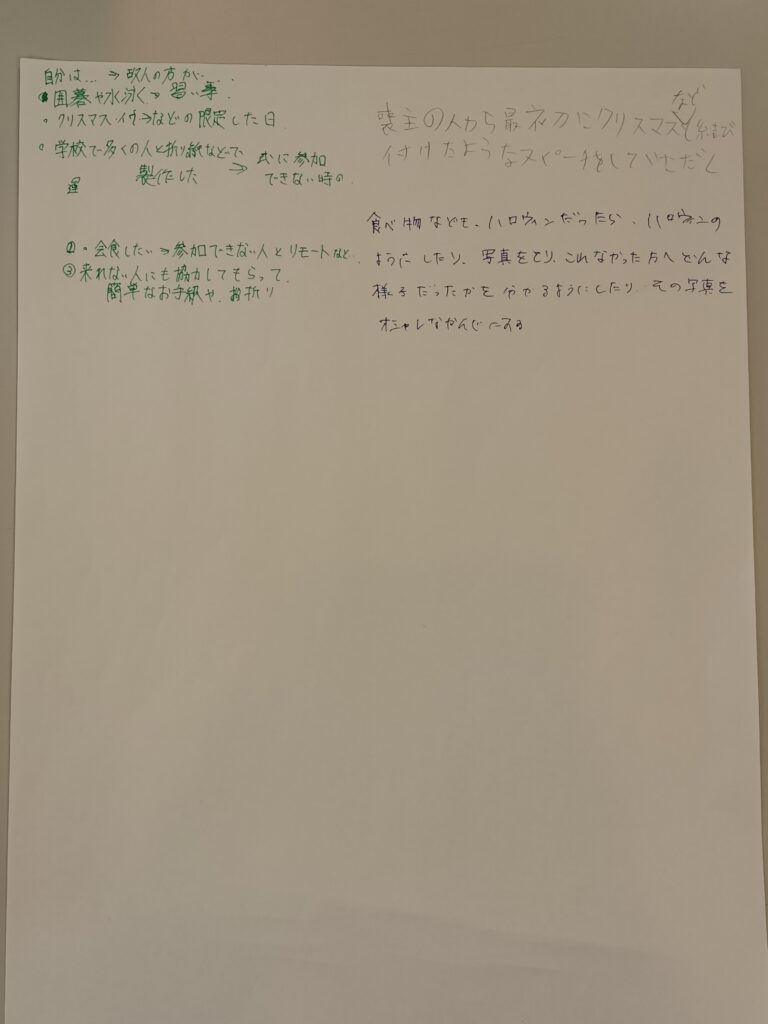 自分は… → 故人の方が….
囲碁や水泳く→ 習い事.
・クリスマス、イヴ→などの限定した日
・学校で多くの人と折り紙などで、
製作した → 式に参加
できない時の.
①・会食したい→参加できない人とリモートなど
③来れない人にも協力してもらって
簡単なお手紙や、お折り
など
喪主の人から最初カにクリスマスと結び
付けたようなスピーチをして
食べ物なども、ハロウィンだったら、ハロウィンの
ようにしたり、写真をとり、これなかった方へどんな
様子だったかを分かるようにしたり、その写真を
オシャレなかんじにする